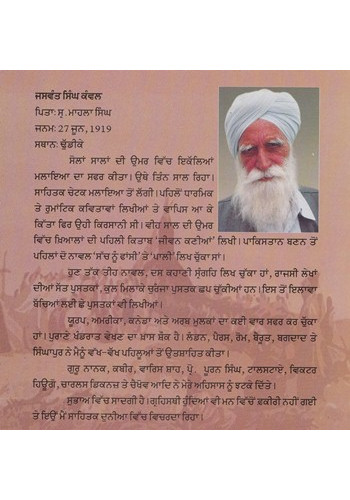 ਜਸਵੰਤ ਸਿੰਘ ਕੰਵਲ
ਪਿਤਾ: ਸ੍ਰ. ਮਾਹਲਾ ਸਿੰਘ
ਜਨਮ: 27 ਜੂਨ, 1919
ਸਥਾਨ: ਢੁੱਡੀਕੇ
ਸੋਲਾਂ ਸਾਲਾਂ ਦੀ ਉਮਰ ਵਿੱਚ ਇਕੱਲਿਆਂ
ਮਲਾਇਆ ਦਾ ਸਫਰ ਕੀਤਾ। ਉਥੇ ਤਿੰਨ ਸਾਲ ਰਿਹਾ।
ਸਾਹਿਤਕ ਚੇਟਕ ਮਲਾਇਆ ਤੋਂ ਲੱਗੀ। ਪਹਿਲੋਂ ਧਾਰਮਿਕ
ਤੇ ਰੁਮਾਂਟਿਕ ਕਵਿਤਾਵਾਂ ਲਿਖੀਆਂ ਤੇ ਵਾਪਿਸ ਆ ਕੇ
ਕਿੱਤਾ ਫਿਰ ਉਹੀ ਕਿਰਸਾਨੀ ਸੀ। ਵੀਹ ਸਾਲ ਦੀ ਉਮਰ
ਵਿੱਚ ਖ਼ਿਆਲਾਂ ਦੀ ਪਹਿਲੀ ਕਿਤਾਬ 'ਜੀਵਨ ਕਣੀਆਂ' ਲਿਖੀ। ਪਾਕਿਸਤਾਨ ਬਣਨ ਤੋਂ
ਪਹਿਲਾਂ ਦੋ ਨਾਵਲ 'ਸੱਚ ਨੂੰ ਫਾਂਸੀ' ਤੇ 'ਪਾਲੀ' ਲਿਖ ਚੁੱਕਾ ਸਾਂ।
ਹੁਣ ਤੱਕ ਤੀਹ ਨਾਵਲ, ਦਸ ਕਹਾਣੀ ਸੰਗ੍ਰਹਿ ਲਿਖ ਚੁੱਕਾ ਹਾਂ, ਰਾਜਸੀ ਲੇਖਾਂ
ਦੀਆਂ ਸੱਤ ਪੁਸਤਕਾਂ, ਕੁਲ ਮਿਲਾਕੇ ਚੁਰੰਜਾ ਪੁਸਤਕਾਂ ਛਪ ਚੁੱਕੀਆਂ ਹਨ। ਇਸ ਤੋਂ ਇਲਾਵਾ
ਬੱਚਿਆਂ ਲਈ ਛੇ ਪੁਸਤਕਾਂ ਵੀ ਲਿਖੀਆਂ।
ਯੂਰਪ, ਅਮਰੀਕਾ, ਕਨੇਡਾ ਅਤੇ ਅਰਬ ਮੁਲਕਾਂ ਦਾ ਕਈ ਵਾਰ ਸਫਰ ਕਰ ਚੁੱਕਾ
ਹਾਂ। ਪੁਰਾਣੇ ਖੰਡਰਾਤ ਵੇਖਣ ਦਾ ਖ਼ਾਸ ਸ਼ੌਕ ਹੈ। ਲੰਡਨ, ਪੈਰਸ, ਰੋਮ, ਬੈਰੂਤ, ਬਗਦਾਦ ਤੇ
ਸਿੰਘਾਪੁਰ ਨੇ ਮੈਨੂੰ ਵੱਖ-ਵੱਖ ਪਹਿਲੂਆਂ ਤੋਂ ਉਤਸ਼ਾਹਿਤ ਕੀਤਾ।
ਗੁਰੂ ਨਾਨਕ, ਕਬੀਰ, ਵਾਰਿਸ ਸ਼ਾਹ, ਪ੍ਰੋ. ਪੂਰਨ ਸਿੰਘ, ਟਾਲਸਟਾਏ, ਵਿਕਟਰ
ਹਿਊਗੋ, ਚਾਰਲਸ ਡਿਕਨਜ਼ ਤੇ ਚੈਖੋਵ ਆਦਿ ਨੇ ਮੇਰੇ ਅਹਿਸਾਸ ਨੂੰ ਝਟਕੇ ਦਿੱਤੇ।
ਸੁਭਾਅ ਵਿੱਚ ਸਾਦਗੀ ਹੈ। ਗ੍ਰਹਿਸਥੀ ਹੁੰਦਿਆਂ ਵੀ ਮਨ ਵਿੱਚੋਂ ਫ਼ਕੀਰੀ ਨਹੀਂ ਗਈ
ਤੇ ਇਉਂ ਮੈਂ ਸਾਹਿਤਕ ਦੁਨੀਆ ਵਿੱਚ ਵਿਚਰਦਾ ਰਿਹਾ।